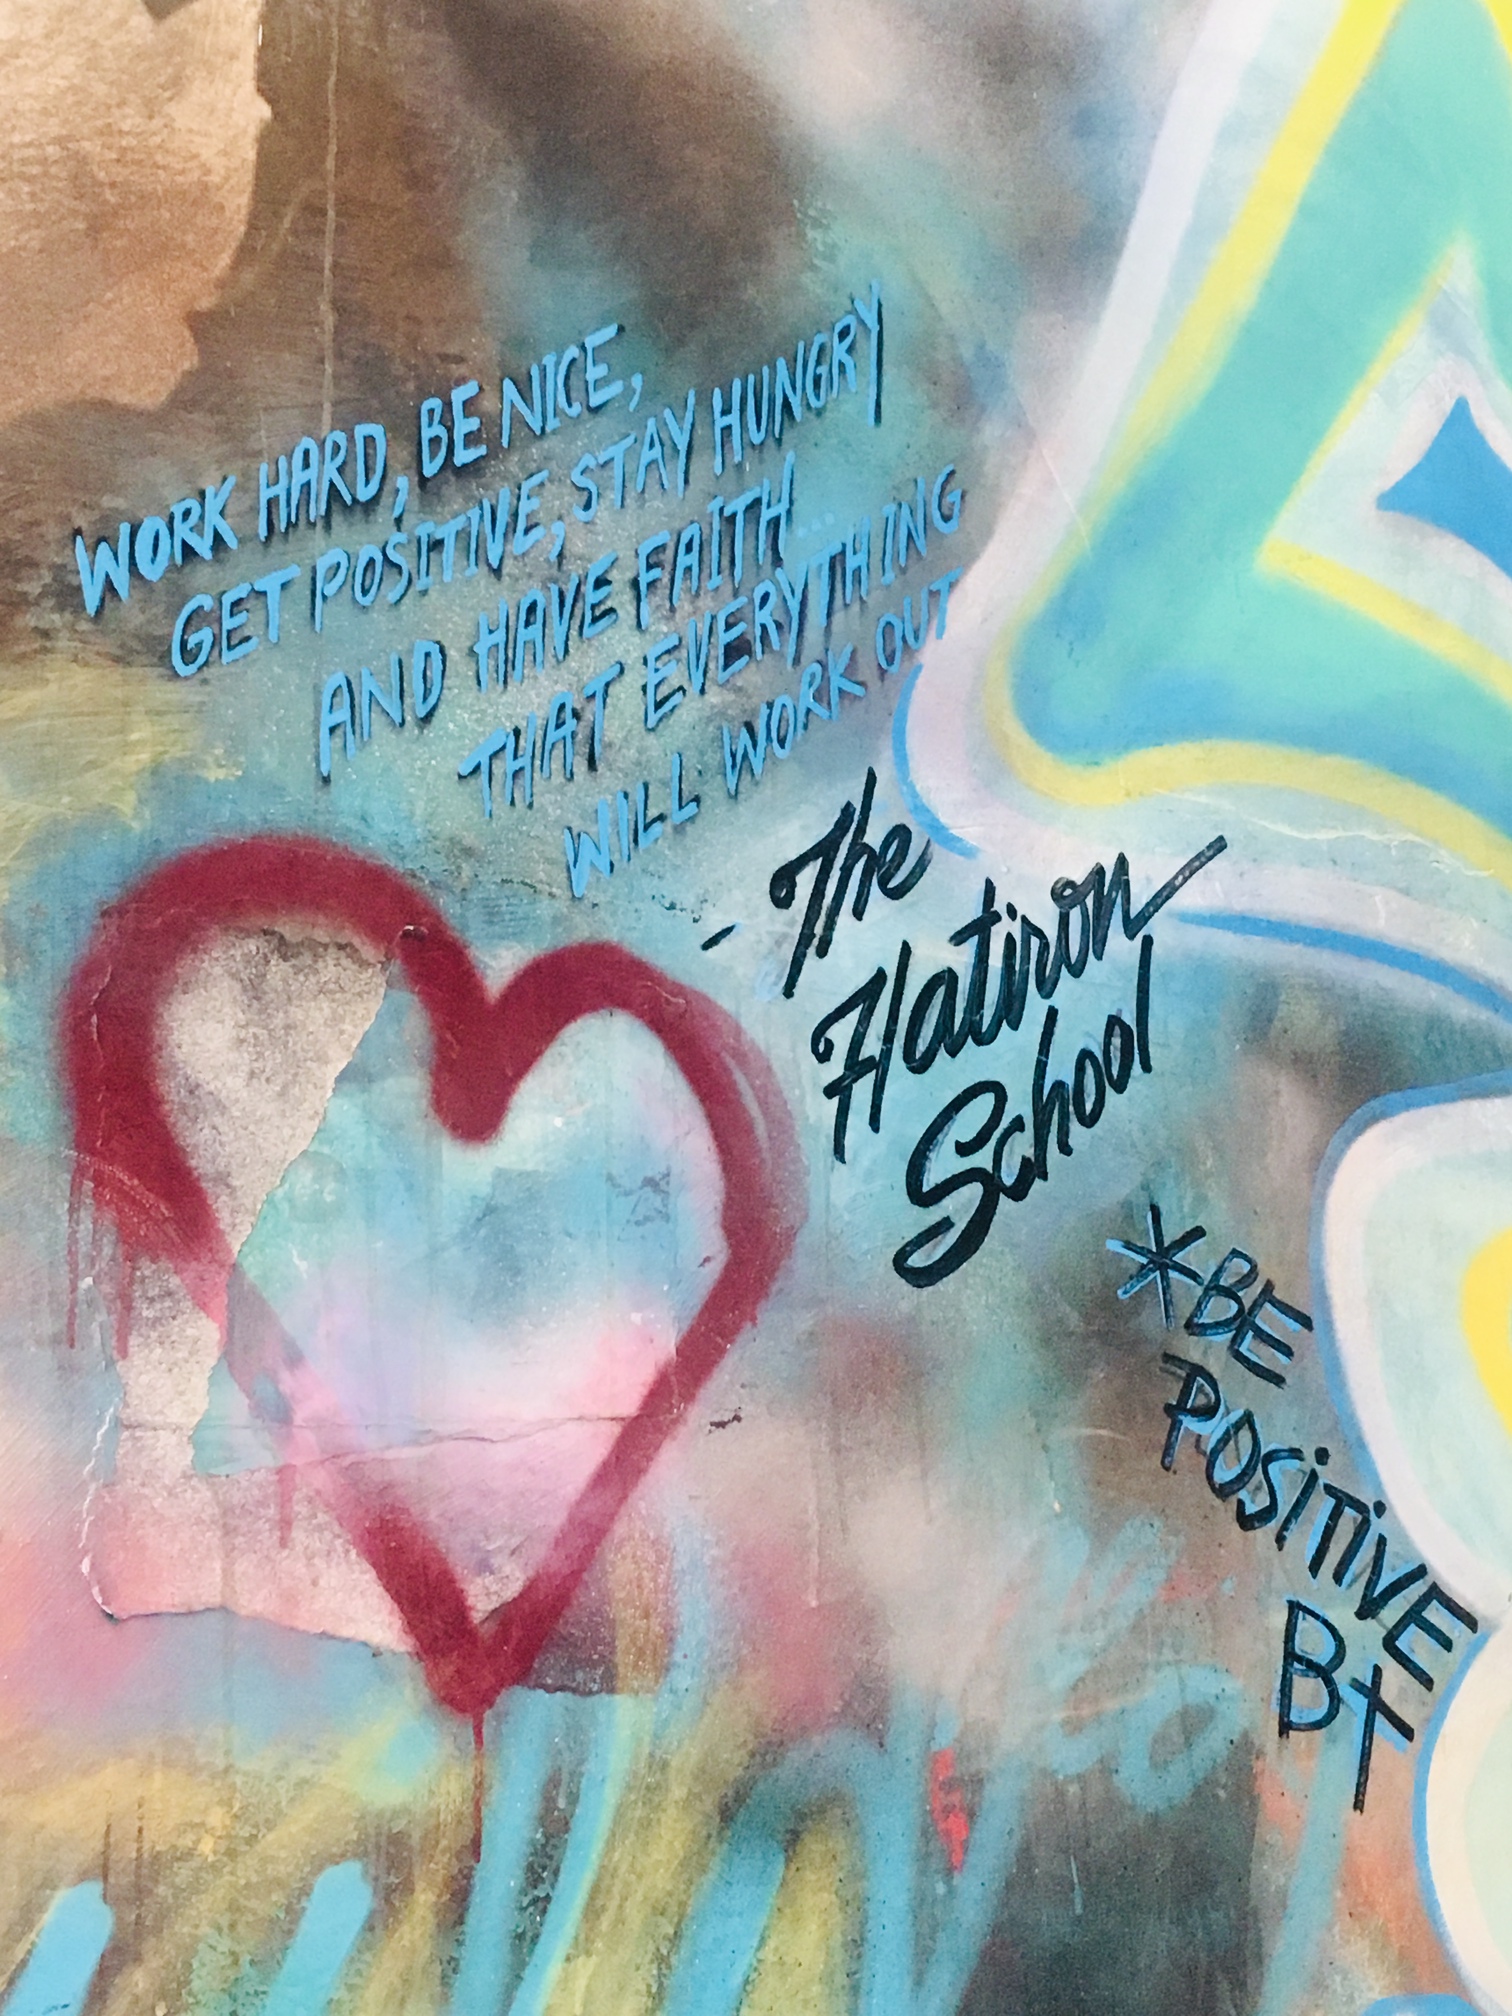 WORK HARD, BE NICE,
GET POSITIVE, STAY HUNGRY
AND HAVE FAITH...
THAT EVERYTHING
WILL WORK OUT
- The
Flatiron
School
*BE
POSITIVE
B+